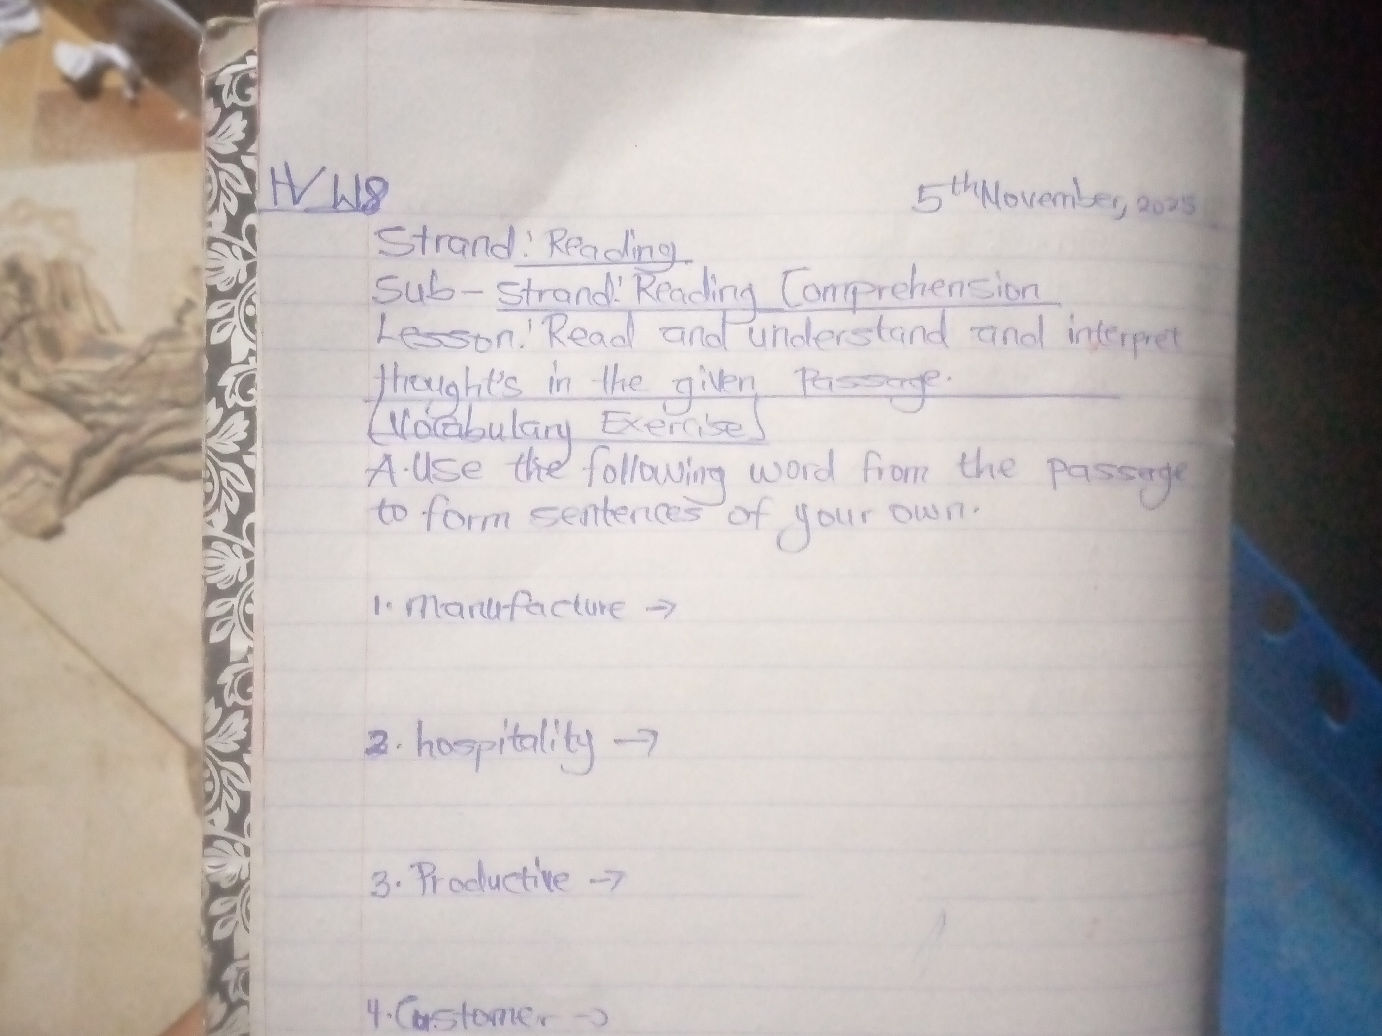 HV W8
5th November, 2025
Strand: Reading
Sub-Strand: Reading Comprehension
Lesson: Read and understand and interpret
thought's in the given Passage.
(Vocabulary Exercise)
A. Use the following word from the passage
to form sentences of your own.
1. Manufacture →
2. hospitality →
3. Productive →
4. Customer →